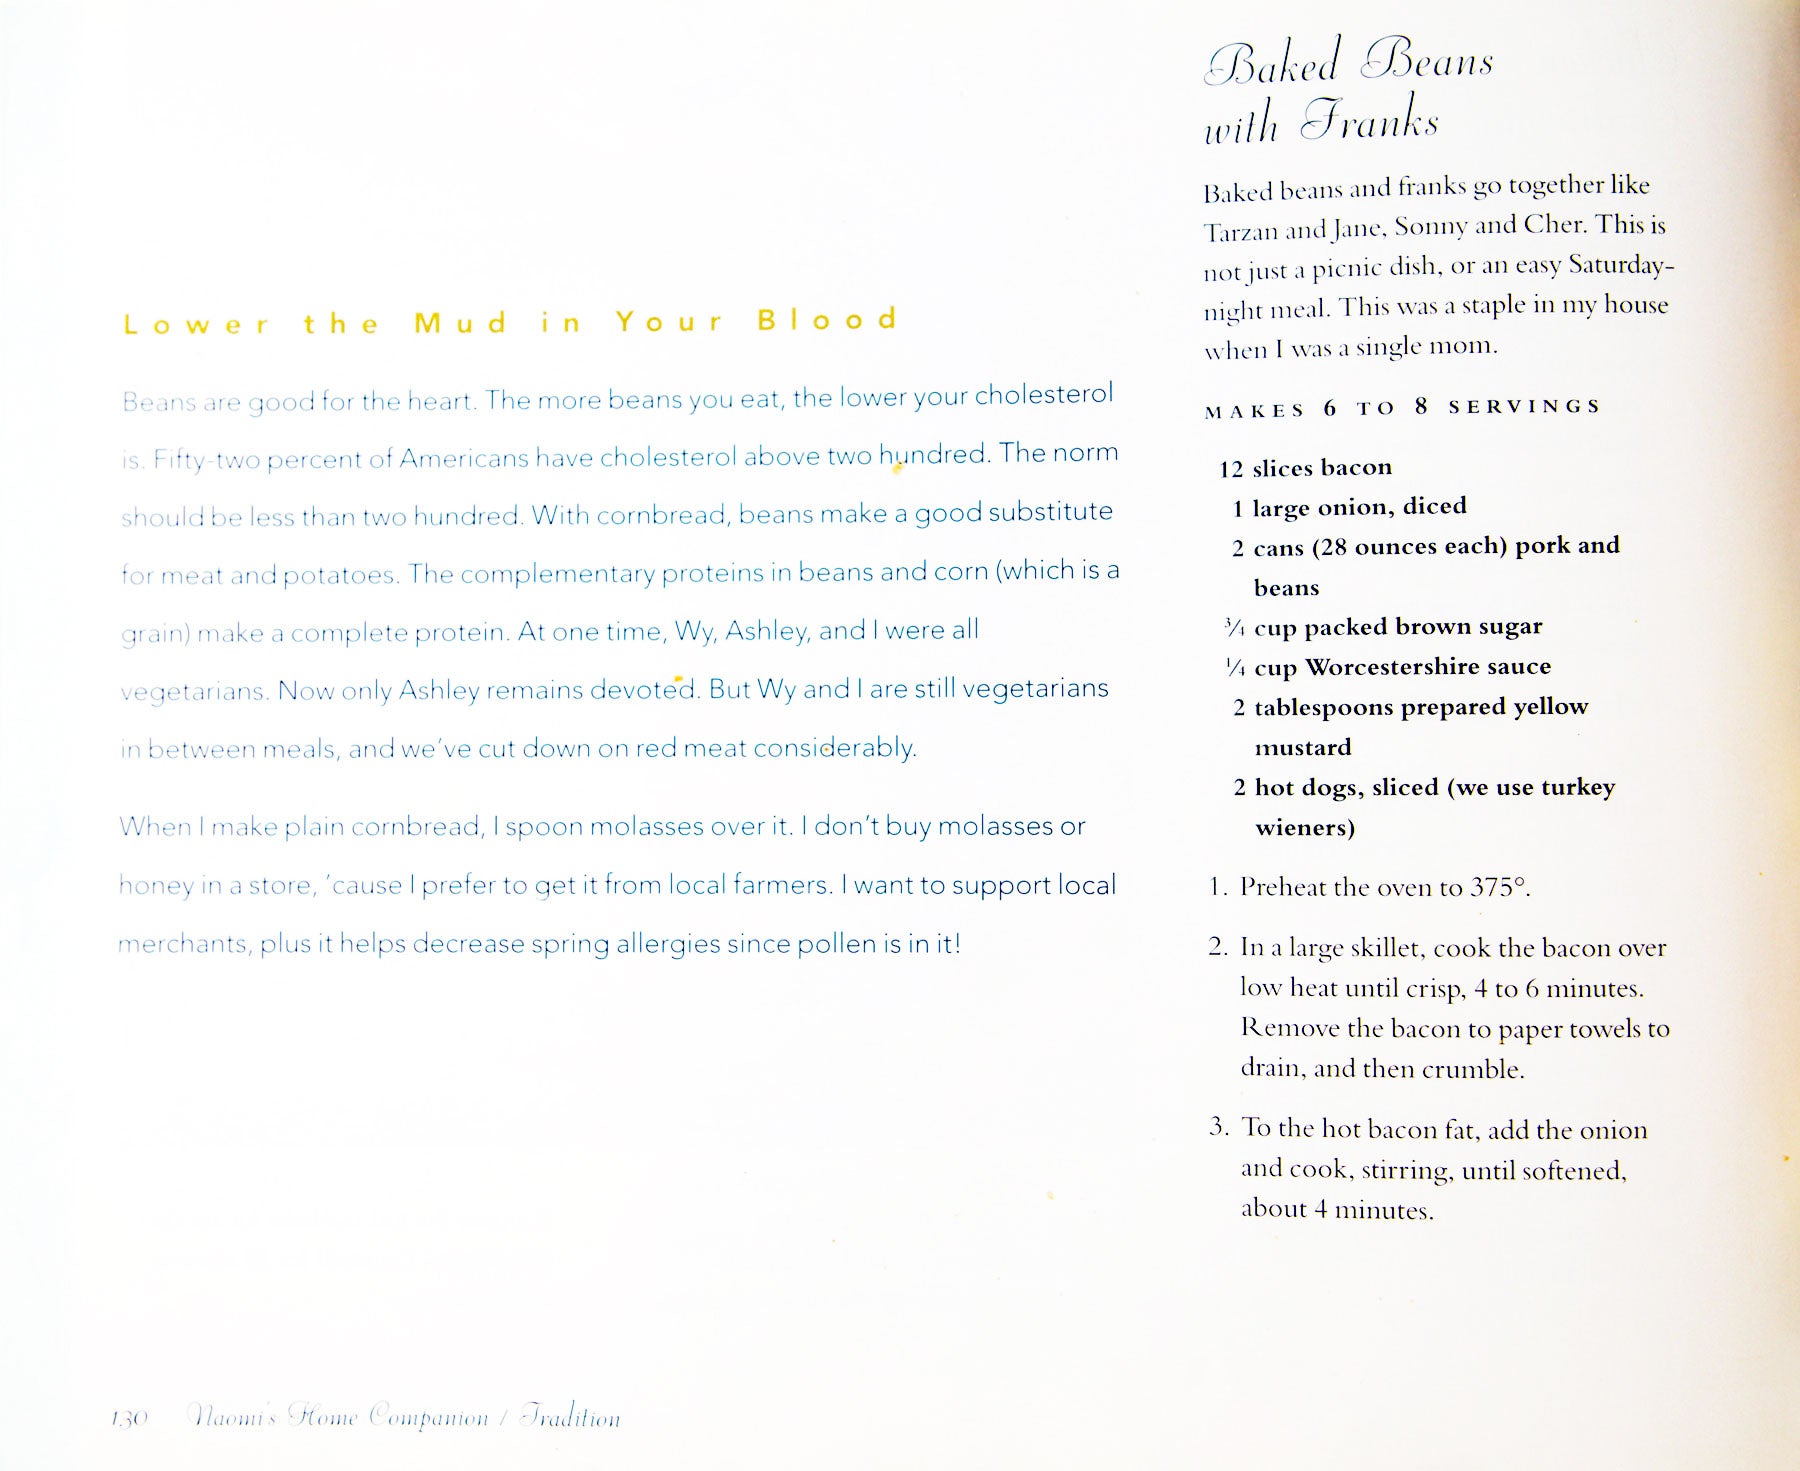 Lower the Mud in Your Blood
Beans are good for the heart. The more beans you eat, the lower your cholesterol
is. Fifty-two percent of Americans have cholesterol above two hundred. The norm
should be less than two hundred. With cornbread, beans make a good substitute
for meat and potatoes. The complementary proteins in beans and corn (which is a
grain) make a complete protein. At one time, Wy, Ashley, and I were all
vegetarians. Now only Ashley remains devoted. But Wy and I are still vegetarians
in between meals, and we've cut down on red meat considerably.
When I make plain cornbread, I spoon molasses over it. I don't buy molasses or
honey in a store, 'cause I prefer to get it from local farmers. I want to support local
merchants, plus it helps decrease spring allergies since pollen is in it!
Baked Beans
with Franks
Baked beans and franks go together like
Tarzan and Jane, Sonny and Cher. This is
not just a picnic dish, or an easy Saturday-
night meal. This was a staple in my house
when I was a single mom.
MAKES 6 TO 8 SERVINGS
12 slices bacon
1 large onion, diced
2 cans (28 ounces each) pork and
beans
3/4 cup packed brown sugar
1/4 cup Worcestershire sauce
2 tablespoons prepared yellow
mustard
2 hot dogs, sliced (we use turkey
wieners)
1. Preheat the oven to 375°.
2. In a large skillet, cook the bacon over
low heat until crisp, 4 to 6 minutes.
Remove the bacon to paper towels to
drain, and then crumble.
3. To the hot bacon fat, add the onion
and cook, stirring, until softened,
about 4 minutes.
130 Naomi's Home Companion / Tradition